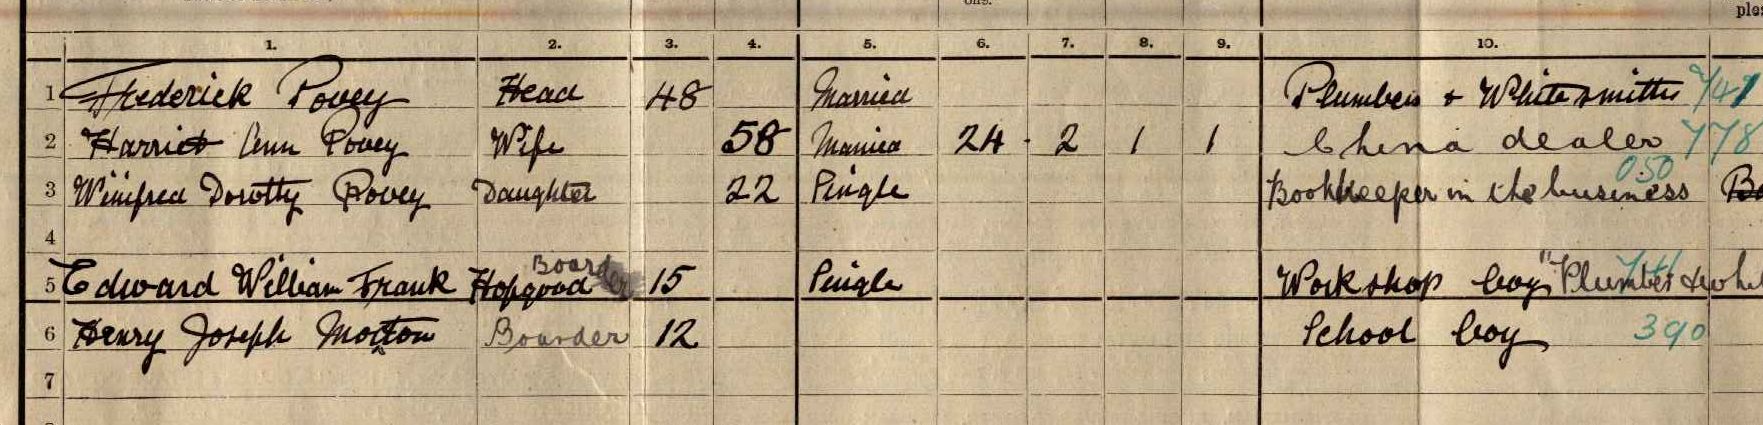 1. 2. 3. 4. 5. 6. 7. 8. 9. 10.
1 Frederick Povey Head 48 Married Plumbers & Whitesmiths 741
2 Harriet Ann Povey Wife 58 Married 24 2 1 1 China dealer 778
3 Winifred Dorothy Povey Daughter 22 Single Bookkeeper in the business 050
4
5 Edward William Frank Hopgood Boarder 15 Single Workshop boy "Plumber & whi
6 Henry Joseph Motton Boarder 12 School boy 390
7